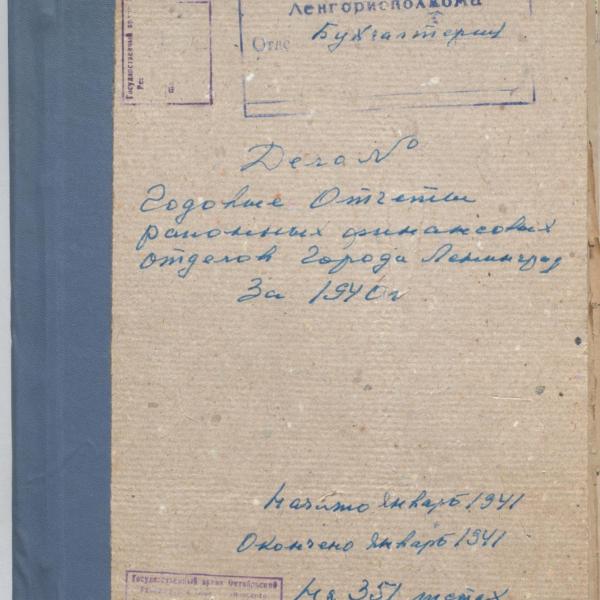 Государственный
Ленгорисполкома
Бухгалтерии
Дело №
Годовые Отчеты
районных финансовых
отделов Города Ленинград
За 1940 г
Начато Январь 1941
Окончено Январь 1941
Государственный архив Октябрьской
На 351 листах